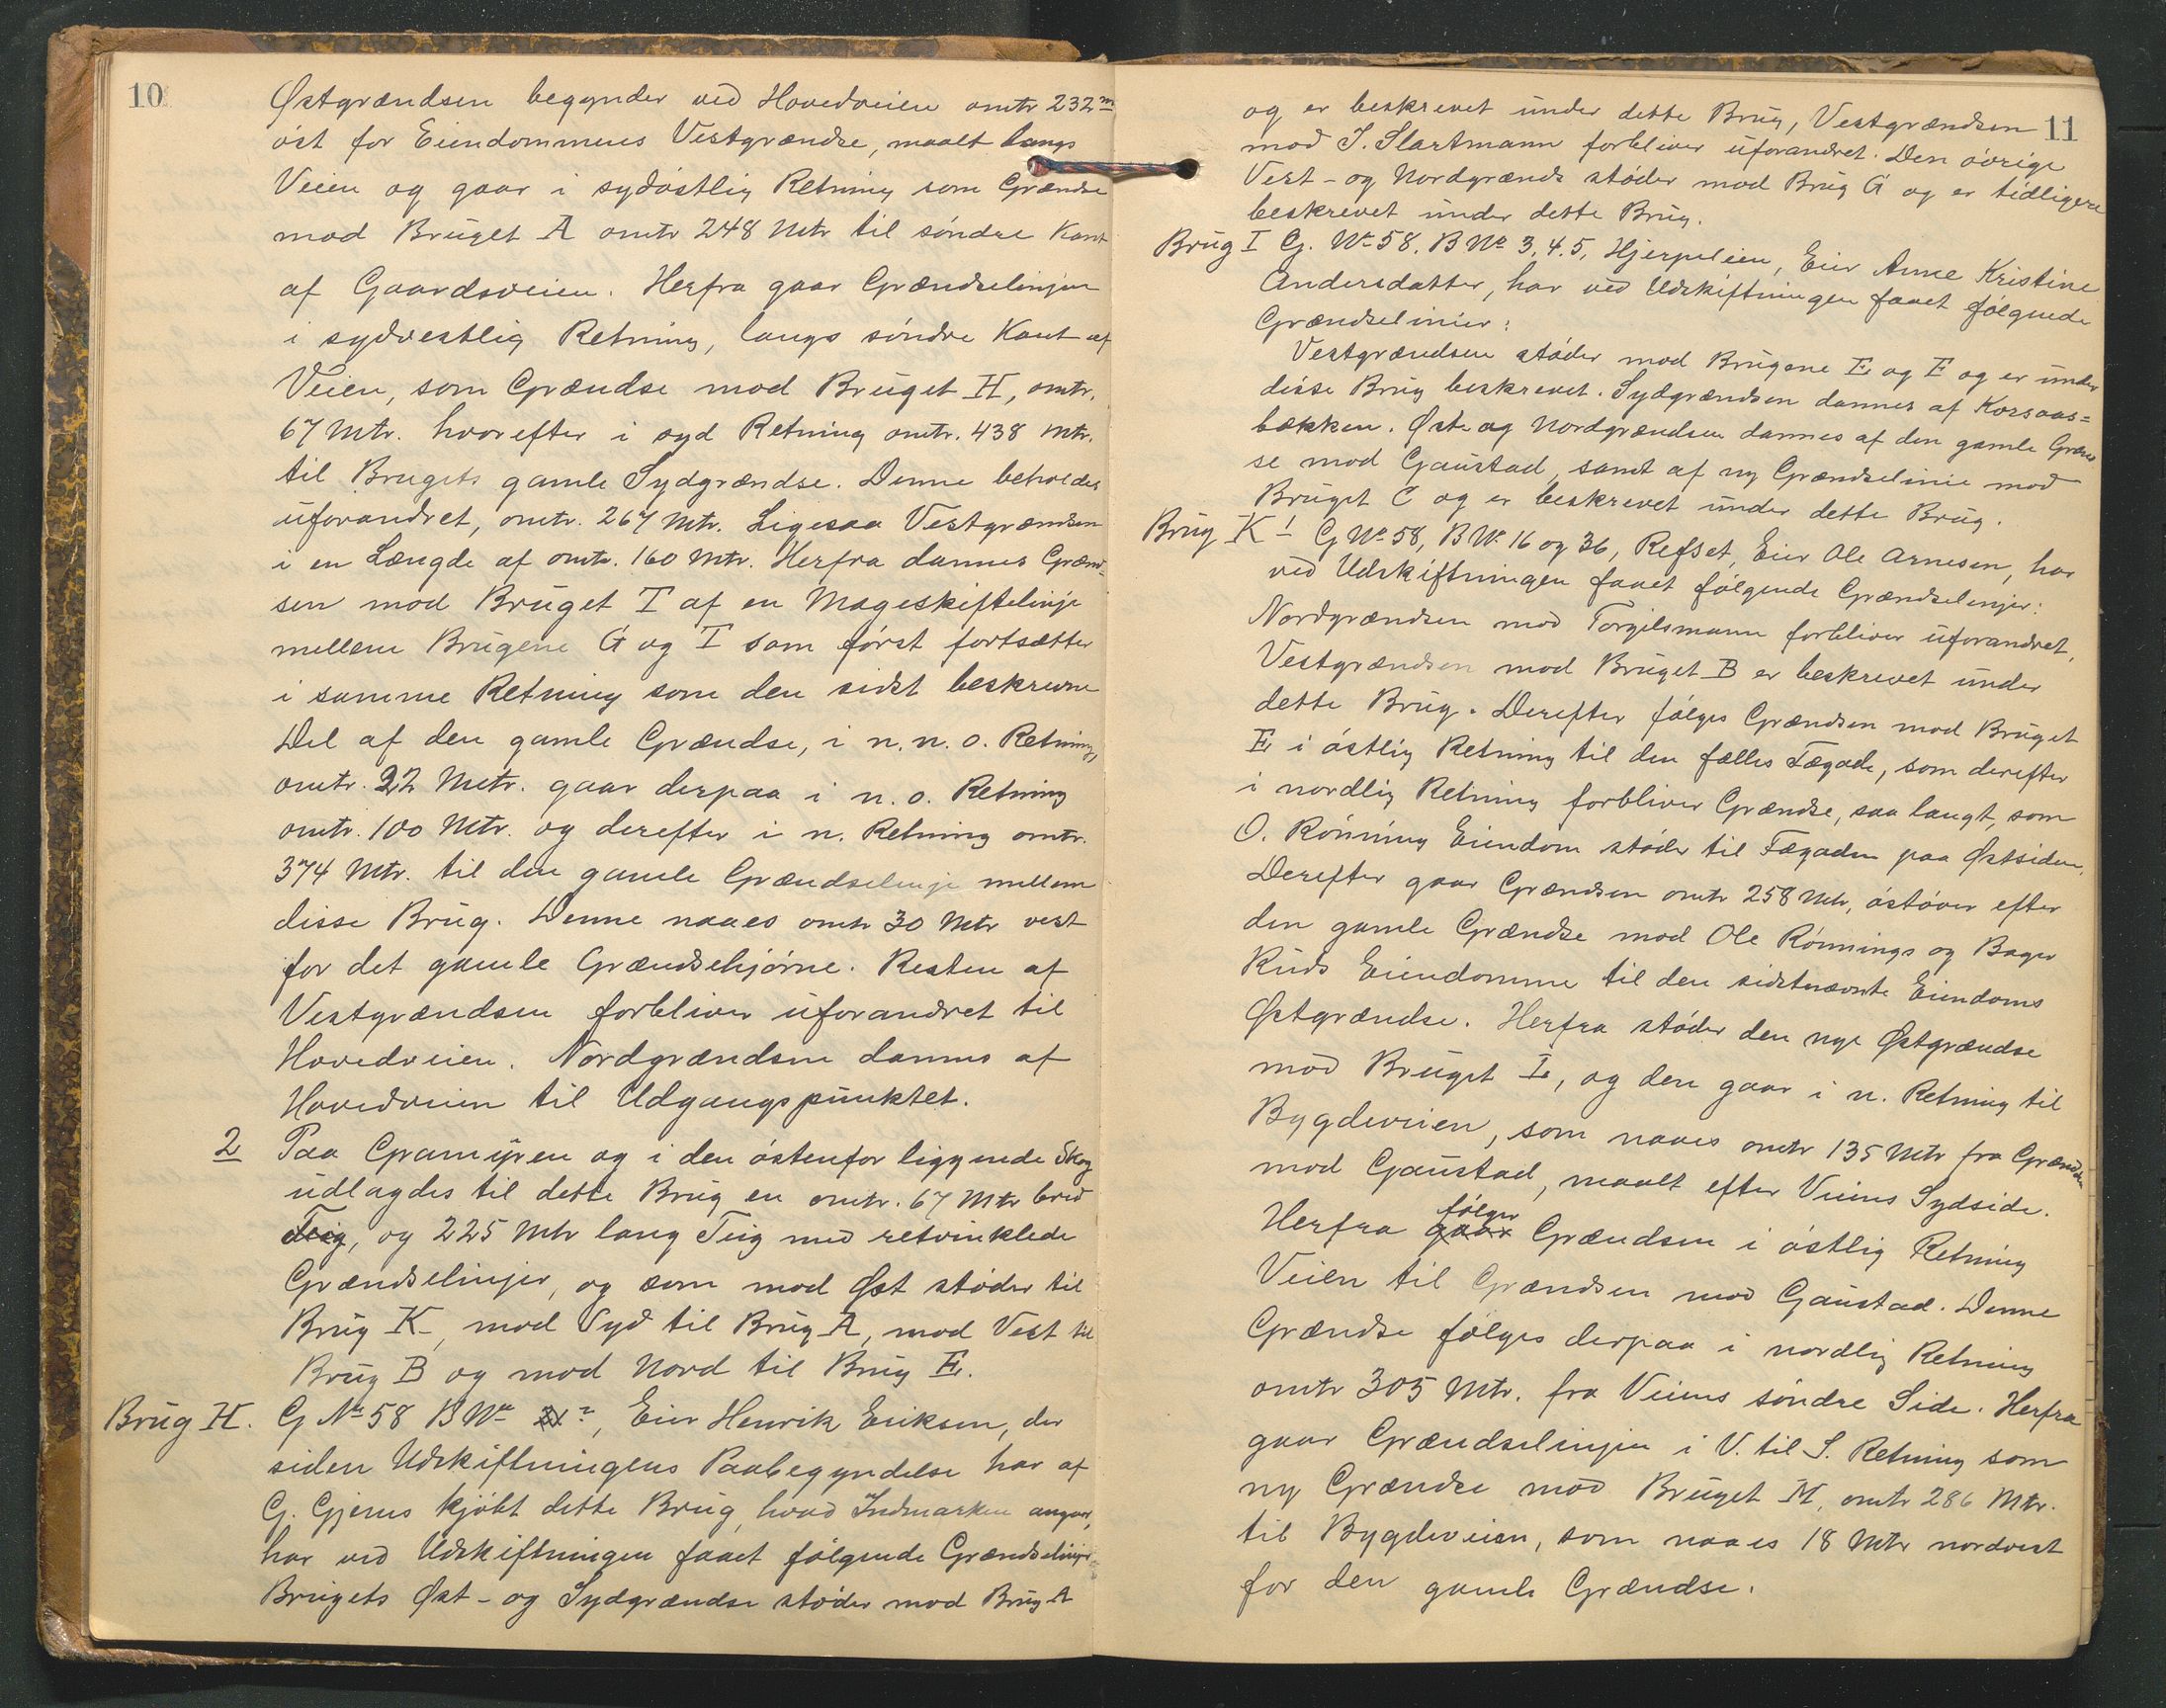 10
Østgrændsen begynder ved Hovedveien omtr 232 m
øst for Eiendommens Vestgrændse, maalt langs
Veien og gaar i sydøstlig Retning som Grændse
mod Bruget A omtr 248 Mtr til søndre Kant
af Gaardsveien. Herfra gaar Grændselinjen
i sydvestlig Retning, langs søndre Kant af
Veien, som Grændse mod Bruget H, omtr.
67 Mtr. hvorefter i syd Retning omtr. 438 Mtr.
til Brugets gamle Sydgrændse. Denne beholdes
uforandret, omtr. 267 Mtr. Ligesaa Vestgrændsen
i en Længde af omtr. 160 Mtr. Herfra dannes Grænd-
sen mod Bruget I af en Mageskiftelinje
mellem Brugene G og I som først fortsætter
i samme Retning som den sidst beskrevne
Del af den gamle Grændse, i n.n.o. Retning,
omtr. 22 Metr. gaar derpaa i n.o. Retning
omtr. 100 Mtr. og derefter i n. Retning omtr.
374 Mtr. til den gamle Grændselinje mellem
disse Brug. Denne naaes omtr 30 Mtr vest
for det gamle Grændsehjørne. Resten af
Vestgrændsen forbliver uforandret til
Hovedveien. Nordgrændsen dannes af
Hovedveien til Udgangspunktet.
2 Paa Gramyren og i den østenfor liggende Skog
udlagdes til dette Brug en omtr. 67 Mtr bred
Teig, og 225 Mtr lang Teig med retvinklede
Grændselinjer, og som mod Øst støder til
Brug K, mod Syd til Brug A, mod Vest til
Brug B og mod Nord til Brug E.
Brug H. G No 58 B No ?, Eier Henrik Eriksen, der
siden Udskiftningens Paabegyndelse har af
G. Gjerus kjøbt dette Brug, hvad Indmarken angaar,
har ved Udskiftningen faaet følgende Grændselinjer
Brugets Øst- og Sydgrændse støder mod Brug A
11
og er beskrevet under dette Brug, Vestgrændsen
mod I. Slartmann forbliver uforandret. Den øvrige
Vest- og Nordgrænds støder mod Brug G og er tidligere
beskrevet under dette Brug.
Brug I G. No 58. B No 3.4.5, Hjerpeleien, Eier Anne Kristine
Andersdatter, har ved Udskiftningen faaet følgende
Grændselinier:
Vestgrændsen støder mod Brugene E og F og er under
disse Brug beskrevet. Sydgrændsen dannes af Korsaas=
bækken. Øst og Nordgrændsen dannes af den gamle Grænd
se mod Gaustad, samt af ny Grændselinie mod
Bruget C og er beskrevet under dette Brug.
Brug K 1 G No 58, B No 16 og 36, Refset, Eier Ole Arnesen, har
ved Udskiftningen faaet følgende Grændselinjer:
Nordgrændsen mod Torgilsmann forbliver uforandret,
Vestgrændsen mod Bruget B er beskrevet under
dette Brug. Derefter følges Grændsen mod Bruget
E i østlig Retning til den fælles Fægade, som derefter
i nordlig Retning forbliver Grændse, saa langt, som
O. Rønning Eiendom støder til Fægaden paa Østsiden.
Derefter gaar Grændsen omtr 258 Mtr, østover efter
den gamle Grændse mod Ole Rønnings og Bager
Ruds Eiendomme til den sidstnævnte Eiendoms
Østgrændse. Herfra støder den nye Østgrændse
mod Bruget L, og den gaar i n. Retning til
Bygdeveien, som naaes omtr 135 Mtr fra Grændsen
mod Gaustad, maalt efter Veiens Sydside.
Herfra gaar følger Grændsen i østlig Retning
Veien til Grændsen mod Gaustad. Denne
Grændse følges derpaa i nordlig Retning
omtr 305 Mtr. fra Veiens søndre Side. Herfra
gaar Grændselinjen i V. til S. Retning som
ny Grændse mod Bruget M, omtr 286 Mtr.
til Bygdeveien, som naaes 18 Mtr nordvest
for den gamle Grændse.